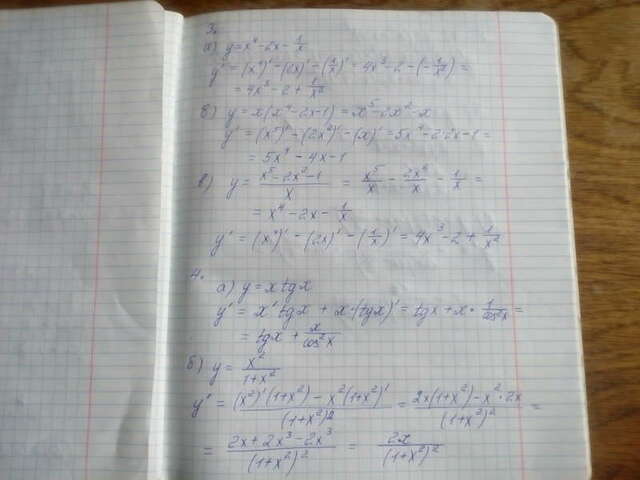 3.
а) y = x⁴ - 2x - 1/x
y' = (x⁴)' - (2x)' - (1/x)' = 4x³ - 2 - (-1/x²) =
= 4x³ - 2 + 1/x²
б) y = x(x⁴ - 2x - 1) = x⁵ - 2x² - x
y' = (x⁵)' - (2x²)' - (x)' = 5x⁴ - 2·2x - 1 =
= 5x⁴ - 4x - 1
в) y = (x⁵ - 2x² - 1)/x = x⁵/x - 2x²/x - 1/x =
= x⁴ - 2x - 1/x
y' = (x⁴)' - (2x)' - (1/x)' = 4x³ - 2 + 1/x²
4.
а) y = x tgx
y' = x' tgx + x·(tgx)' = tgx + x · 1/cos²x =
= tgx + x/cos²x
б) y = x²/(1+x²)
y' = ((x²)'(1+x²) - x²(1+x²)')/(1+x²)² = (2x(1+x²) - x²·2x)/(1+x²)² =
= (2x + 2x³ - 2x³)/(1+x²)² = 2x/(1+x²)²